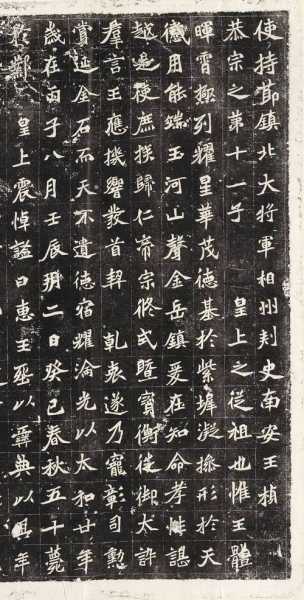 使持節鎮北大將軍相州刺史南安王楨
恭宗之第十一子 皇上之從祖也惟王體
暉霄極列耀星華茂德基於紫墀凝操形於天
感用能端玉河山聲金岳鎮爰在知命孝性諶
越遂使庶族歸仁帝宗攸式暨寶衡徙御太訏
羣言王應機響發首契 乾衷遂乃寵彰司勳
賞延金石而天不遺德宿耀淪光以太和廿年
歲在丙子八月壬辰朔二日癸巳春秋五十薨
於鄴 皇上震悼諡曰惠王葬以彝典以其年